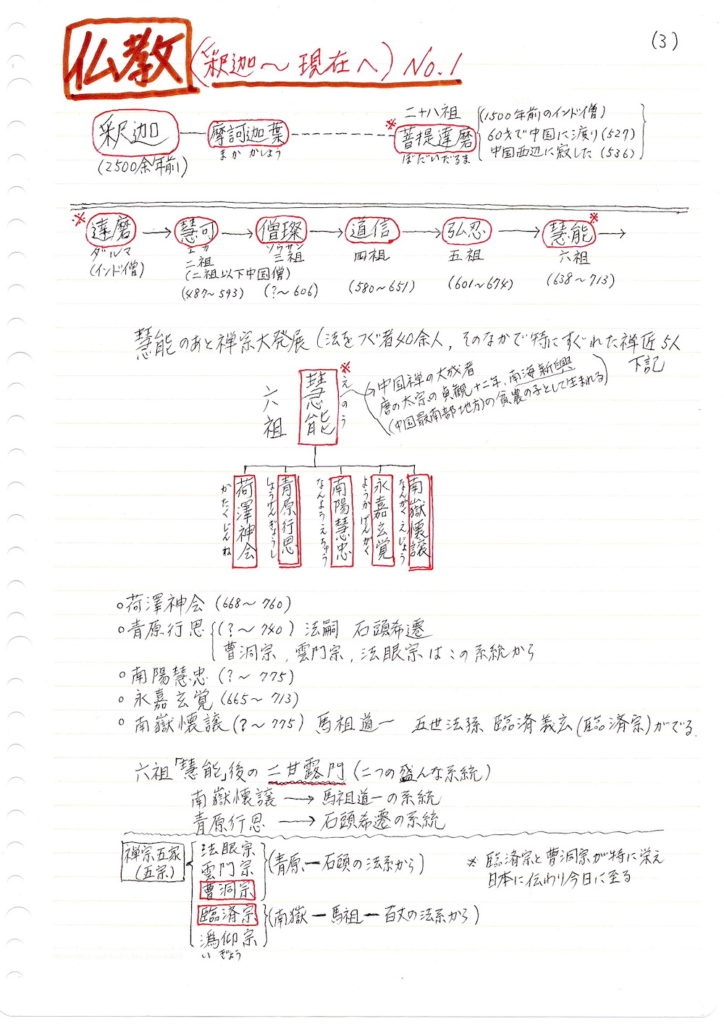 (3)
仏教 (釈迦〜現在へ) No.1
釈迦
(2500余年前)
摩訶迦葉
まか かしょう
二十八祖
※
菩提達磨
ぼだいだるま
(1500年前のインド僧)
60才で中国に渡り(527)
中国西辺に寂した(536)
※
達磨 → 慧可 → 僧璨 → 道信 → 弘忍 → 慧能 ※
ダルマ エカ ソウサン
(インド僧) 二祖 三祖 四祖 五祖 六祖
(二祖以下中国僧)
(487〜593) (?〜606) (580〜651) (601〜674) (638〜713)
慧能のあと禅宗大発展 (法をつぐ者40余人, そのなかで特にすぐれた禅匠5人
下記
六祖
慧能
※
えのう
中国禅の大成者
唐の太宗の貞観十二年、南海新興
(中国最南部地方)の貧農の子として生まれる)
荷澤神会
かたくじんね
青原行思
しょうげんぎょうし
南陽慧忠
なんようえちゅう
永嘉玄覚
ようかげんかく
南嶽懐譲
なんがくえじょう
○荷澤神会 (668〜760)
○青原行思 (?〜740) 法嗣 石頭希遷
曹洞宗, 雲門宗, 法眼宗はこの系統から
○南陽慧忠 (?〜775)
○永嘉玄覚 (665〜713)
○南嶽懐譲 (?〜775) 馬祖道一 五世法孫 臨済義玄(臨済宗)がでる.
六祖「慧能」後の二甘露門 (二つの盛んな系統)
南嶽懐譲 → 馬祖道一の系統
青原行思 → 石頭希遷の系統
禅宗五家
(五宗)
法眼宗
雲門宗
曹洞宗
(青原ー石頭の法系から)
臨済宗
潙仰宗
い ぎょう
(南嶽ー馬祖ー百丈の法系から)
※ 臨済宗と曹洞宗が特に栄え
日本に伝わり今日に至る